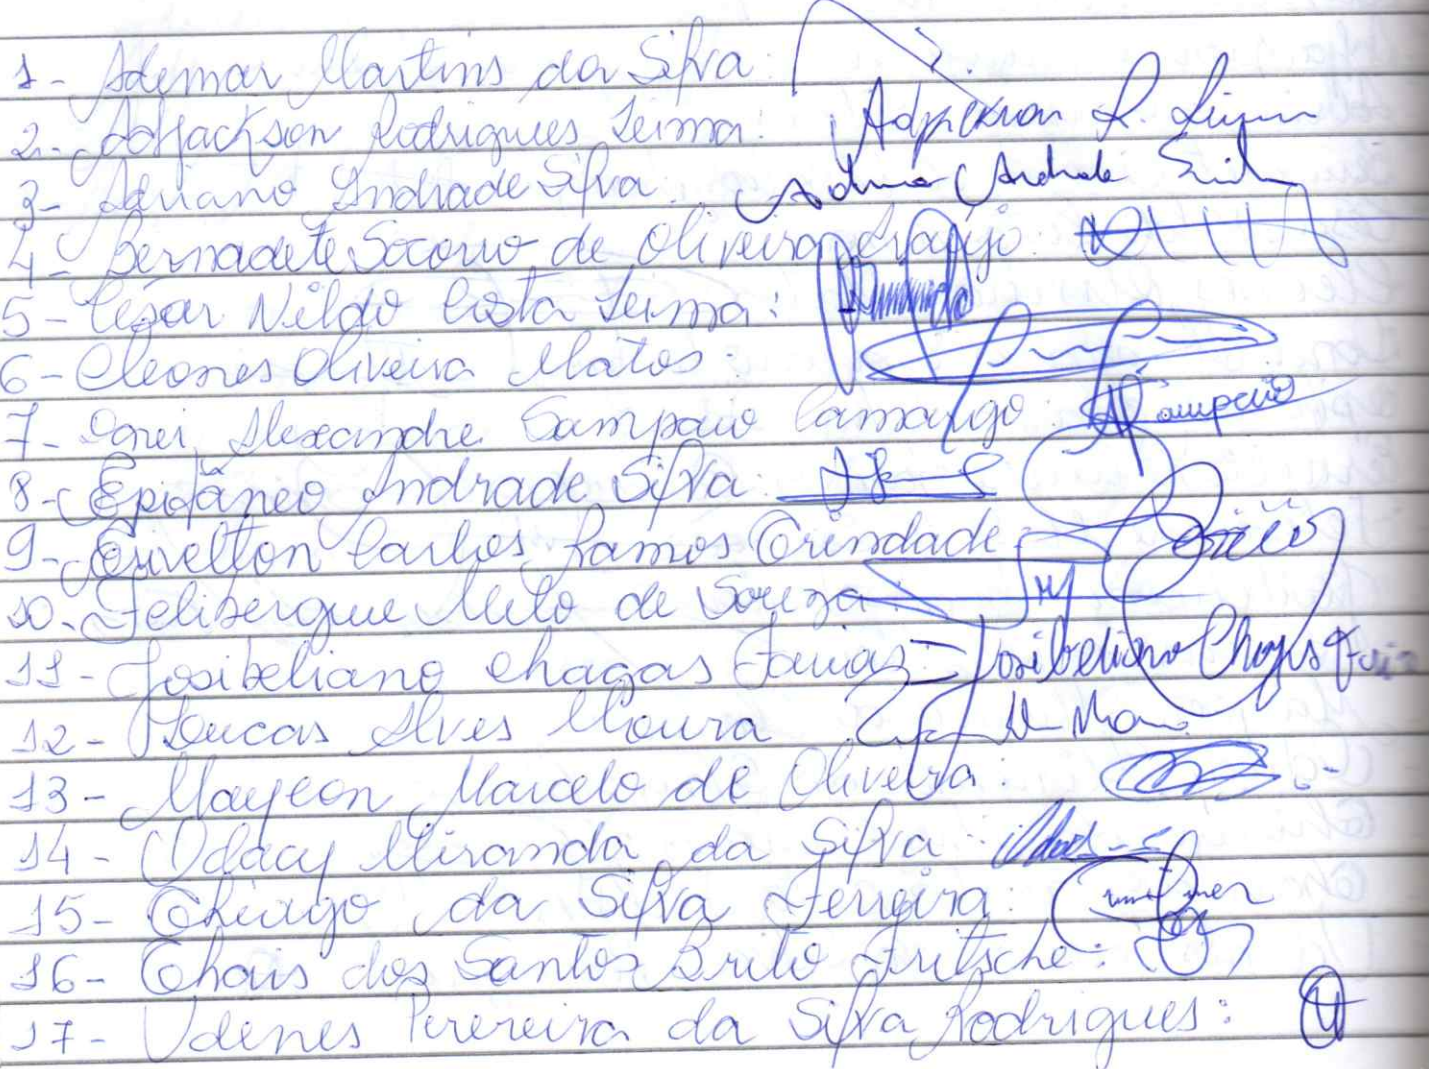 1- Ademar Martins da Silva:
2- Adjackson Rodrigues Leima: Adjackson R. Lima
3- Adriano Andrade Silva: Adriano Andrade Silva
4- Bernadete Socorro de Oliveira Araújo:
5- Cezar Nildo Costa Leima:
6- Cleones Oliveira Matos:
7- Alexandre Sampaio Camargo: Sampaio
8- Epifâneo Andrade Silva:
9- Euvelton Carlos Ramos Trindade
10- Felibergue Melo de Souza:
11- Josibeliano Chagas Farias: Josibeliano Chagas Farias
12- Leucas Alves Moura
13- Mayeon Marcelo de Oliveira:
14- Odacy Miranda da Silva:
15- Thiago da Silva Ferreira:
16- Thais dos Santos Brito Fritsche:
17- Udenes Perereira da Silva Rodrigues: